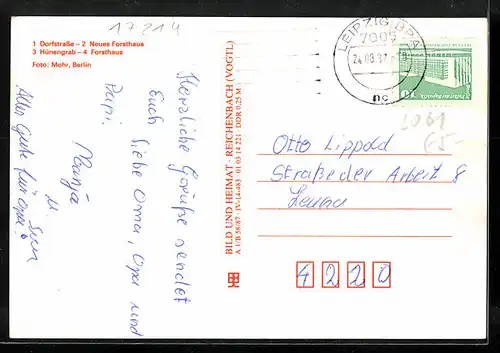 17214
1 Dorfstraße – 2 Neues Forsthaus
3 Hünengrab – 4 Forsthaus
Foto: Mohr, Berlin
Herzliche Grüße sendet
Euch liebe Oma, Opa und
Papi.
Alles Gute für Opa!
BILD UND HEIMAT · REICHENBACH (VOGTL)
A 1/B 58/87 · IV-14-483 · 01 03 14 221 · DDR 0,25 M
LEIPZIG BPA
7009
nc
10
2061
Otto Lippold
Straße der Arbeit 8
Leuna
4220